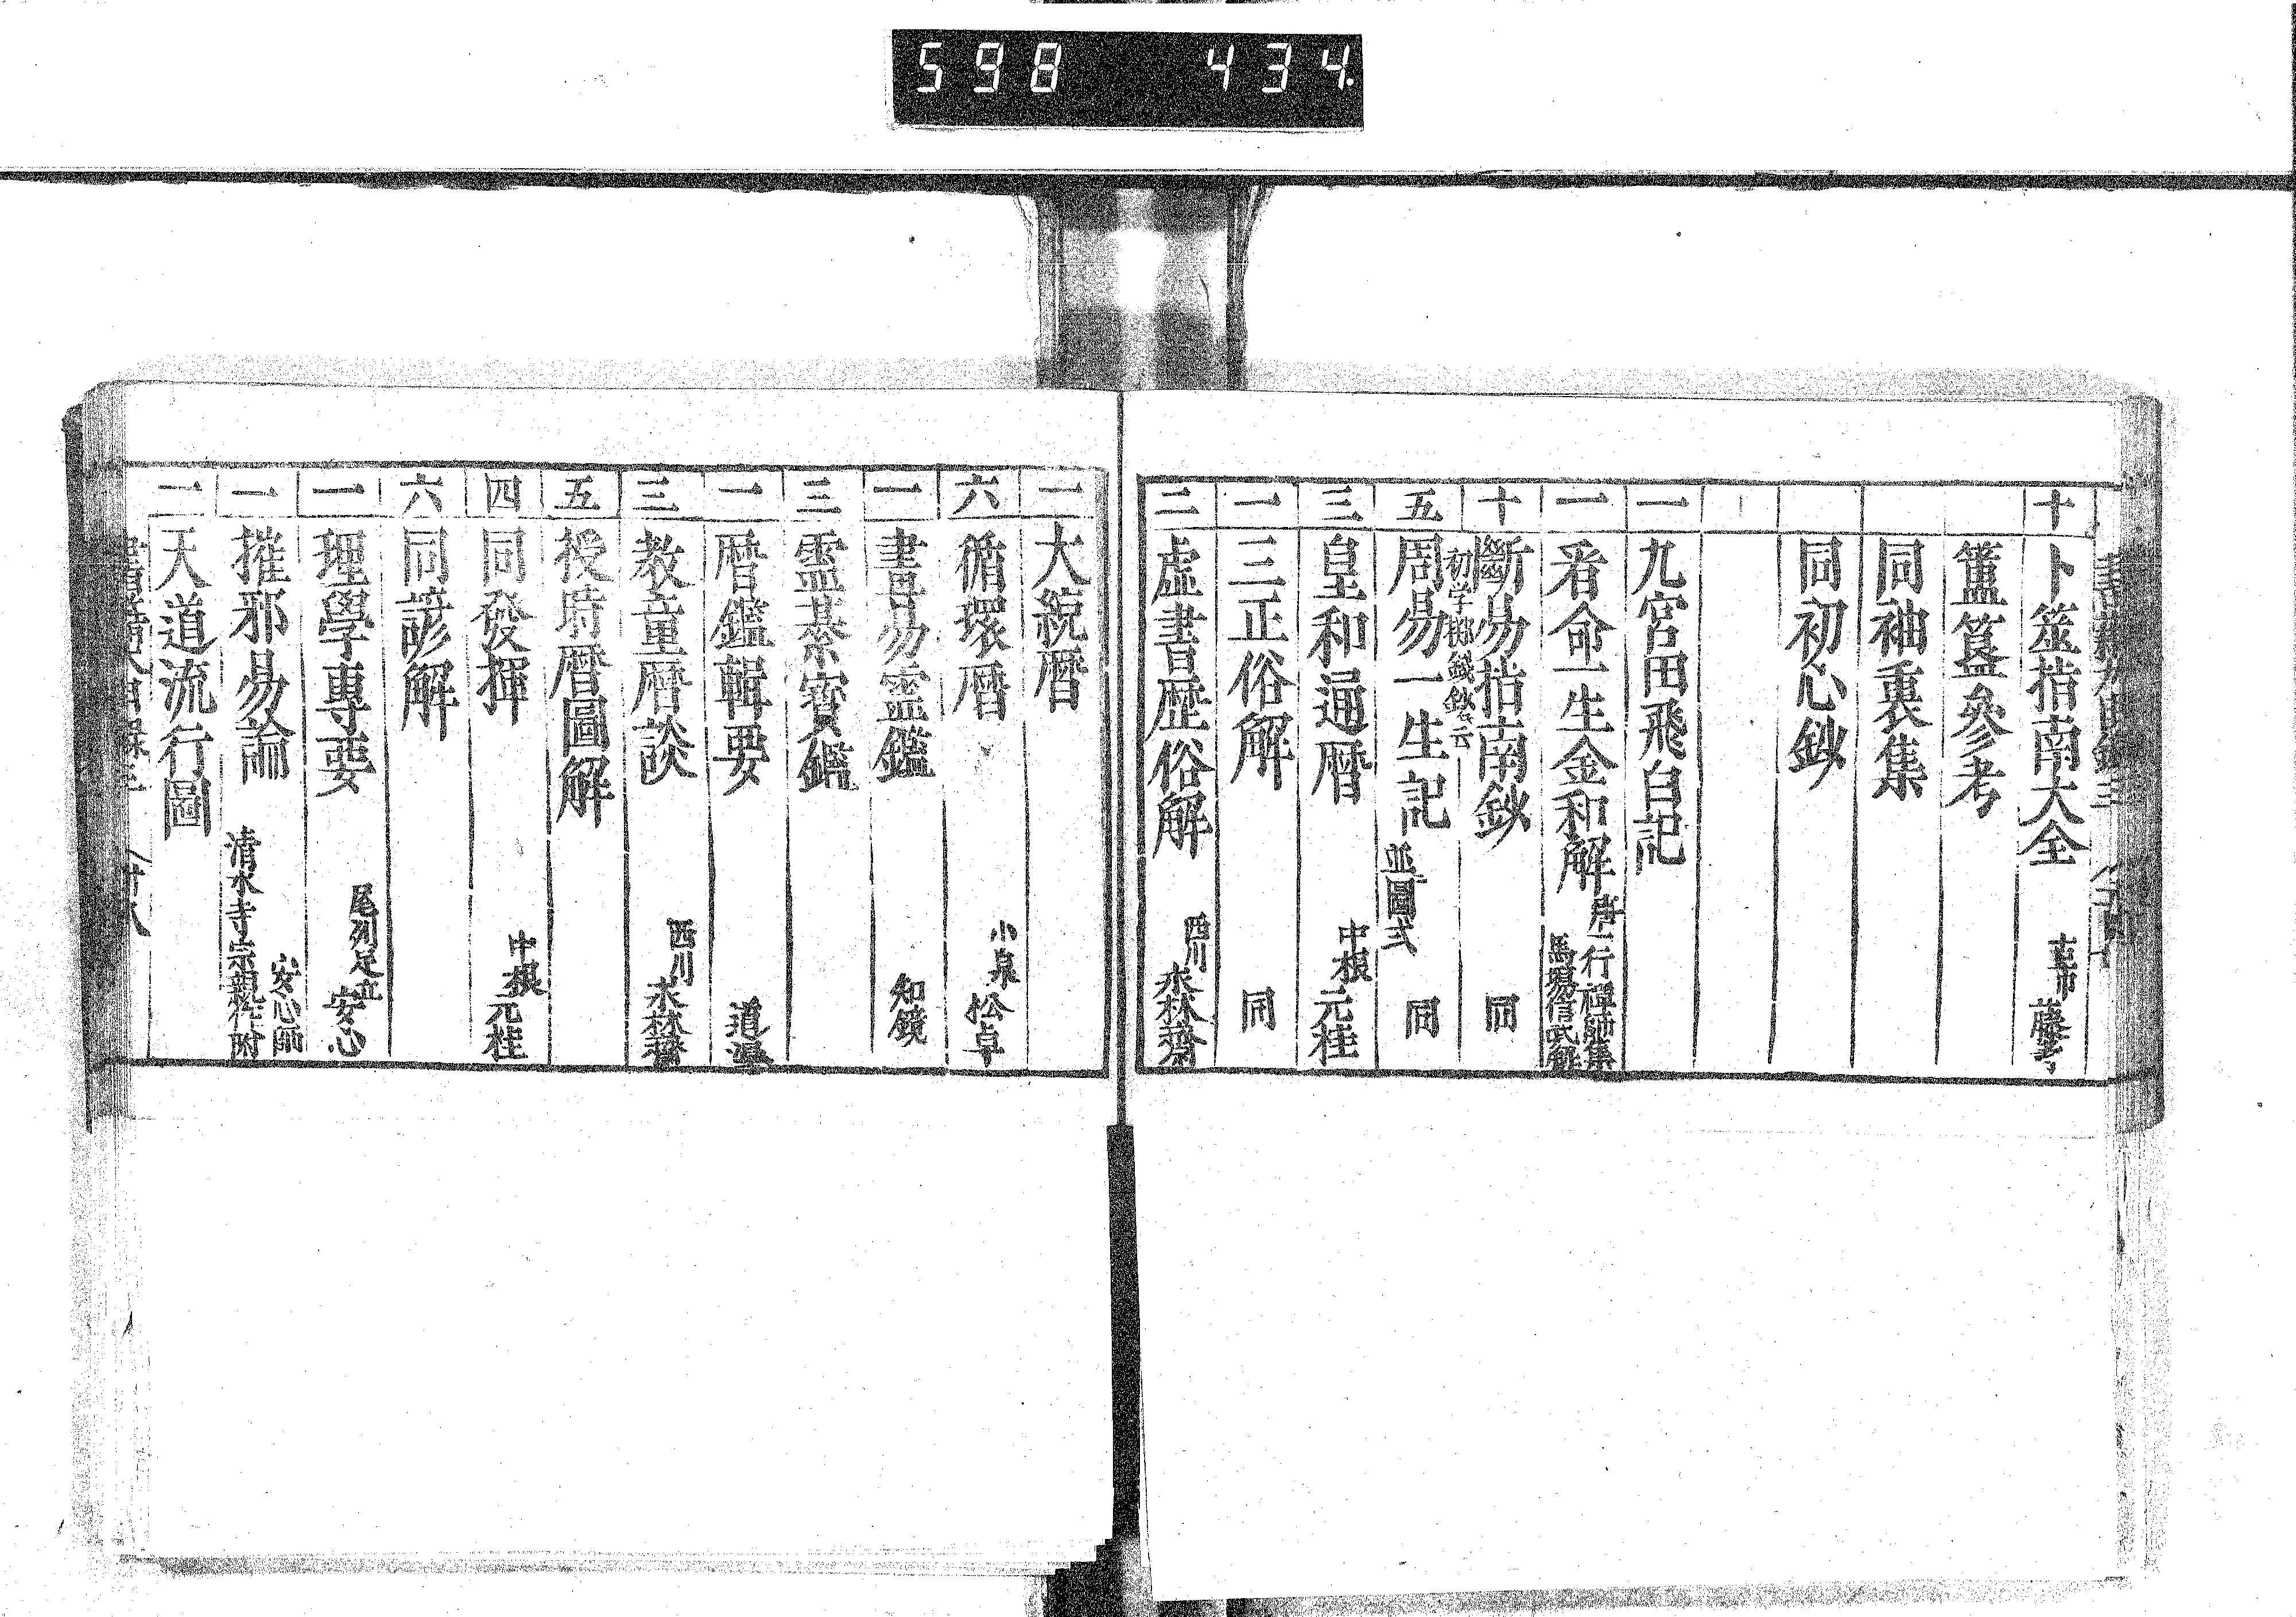 598 434.
十 卜筮指南大全
簠簋參考
同袖裏集
同初心鈔
一 九宮田飛白記
一 看命一生金和解 唐一行禪師集 馬場信武解
十 斷易指南鈔 同
初学擲錢鈔ト云
五 周易一生記 並圖式 同
三 皇和通曆 中根元桂
一 三正俗解 同
二 虛書歷俗解 西川求林齋
一 大統曆
六 循環曆 小泉松卓
一 晝易霊鑑 知鏡
三 霊棊寳鑑
一 曆鑑輯要
三 教童曆談 西川求林齋
五 授時曆圖解
四 同發揮 中根元桂
六 同諺解
一 理學專要 尾州足立安心
一 摧邪易論 清水寺宗親
一 天道流行圖